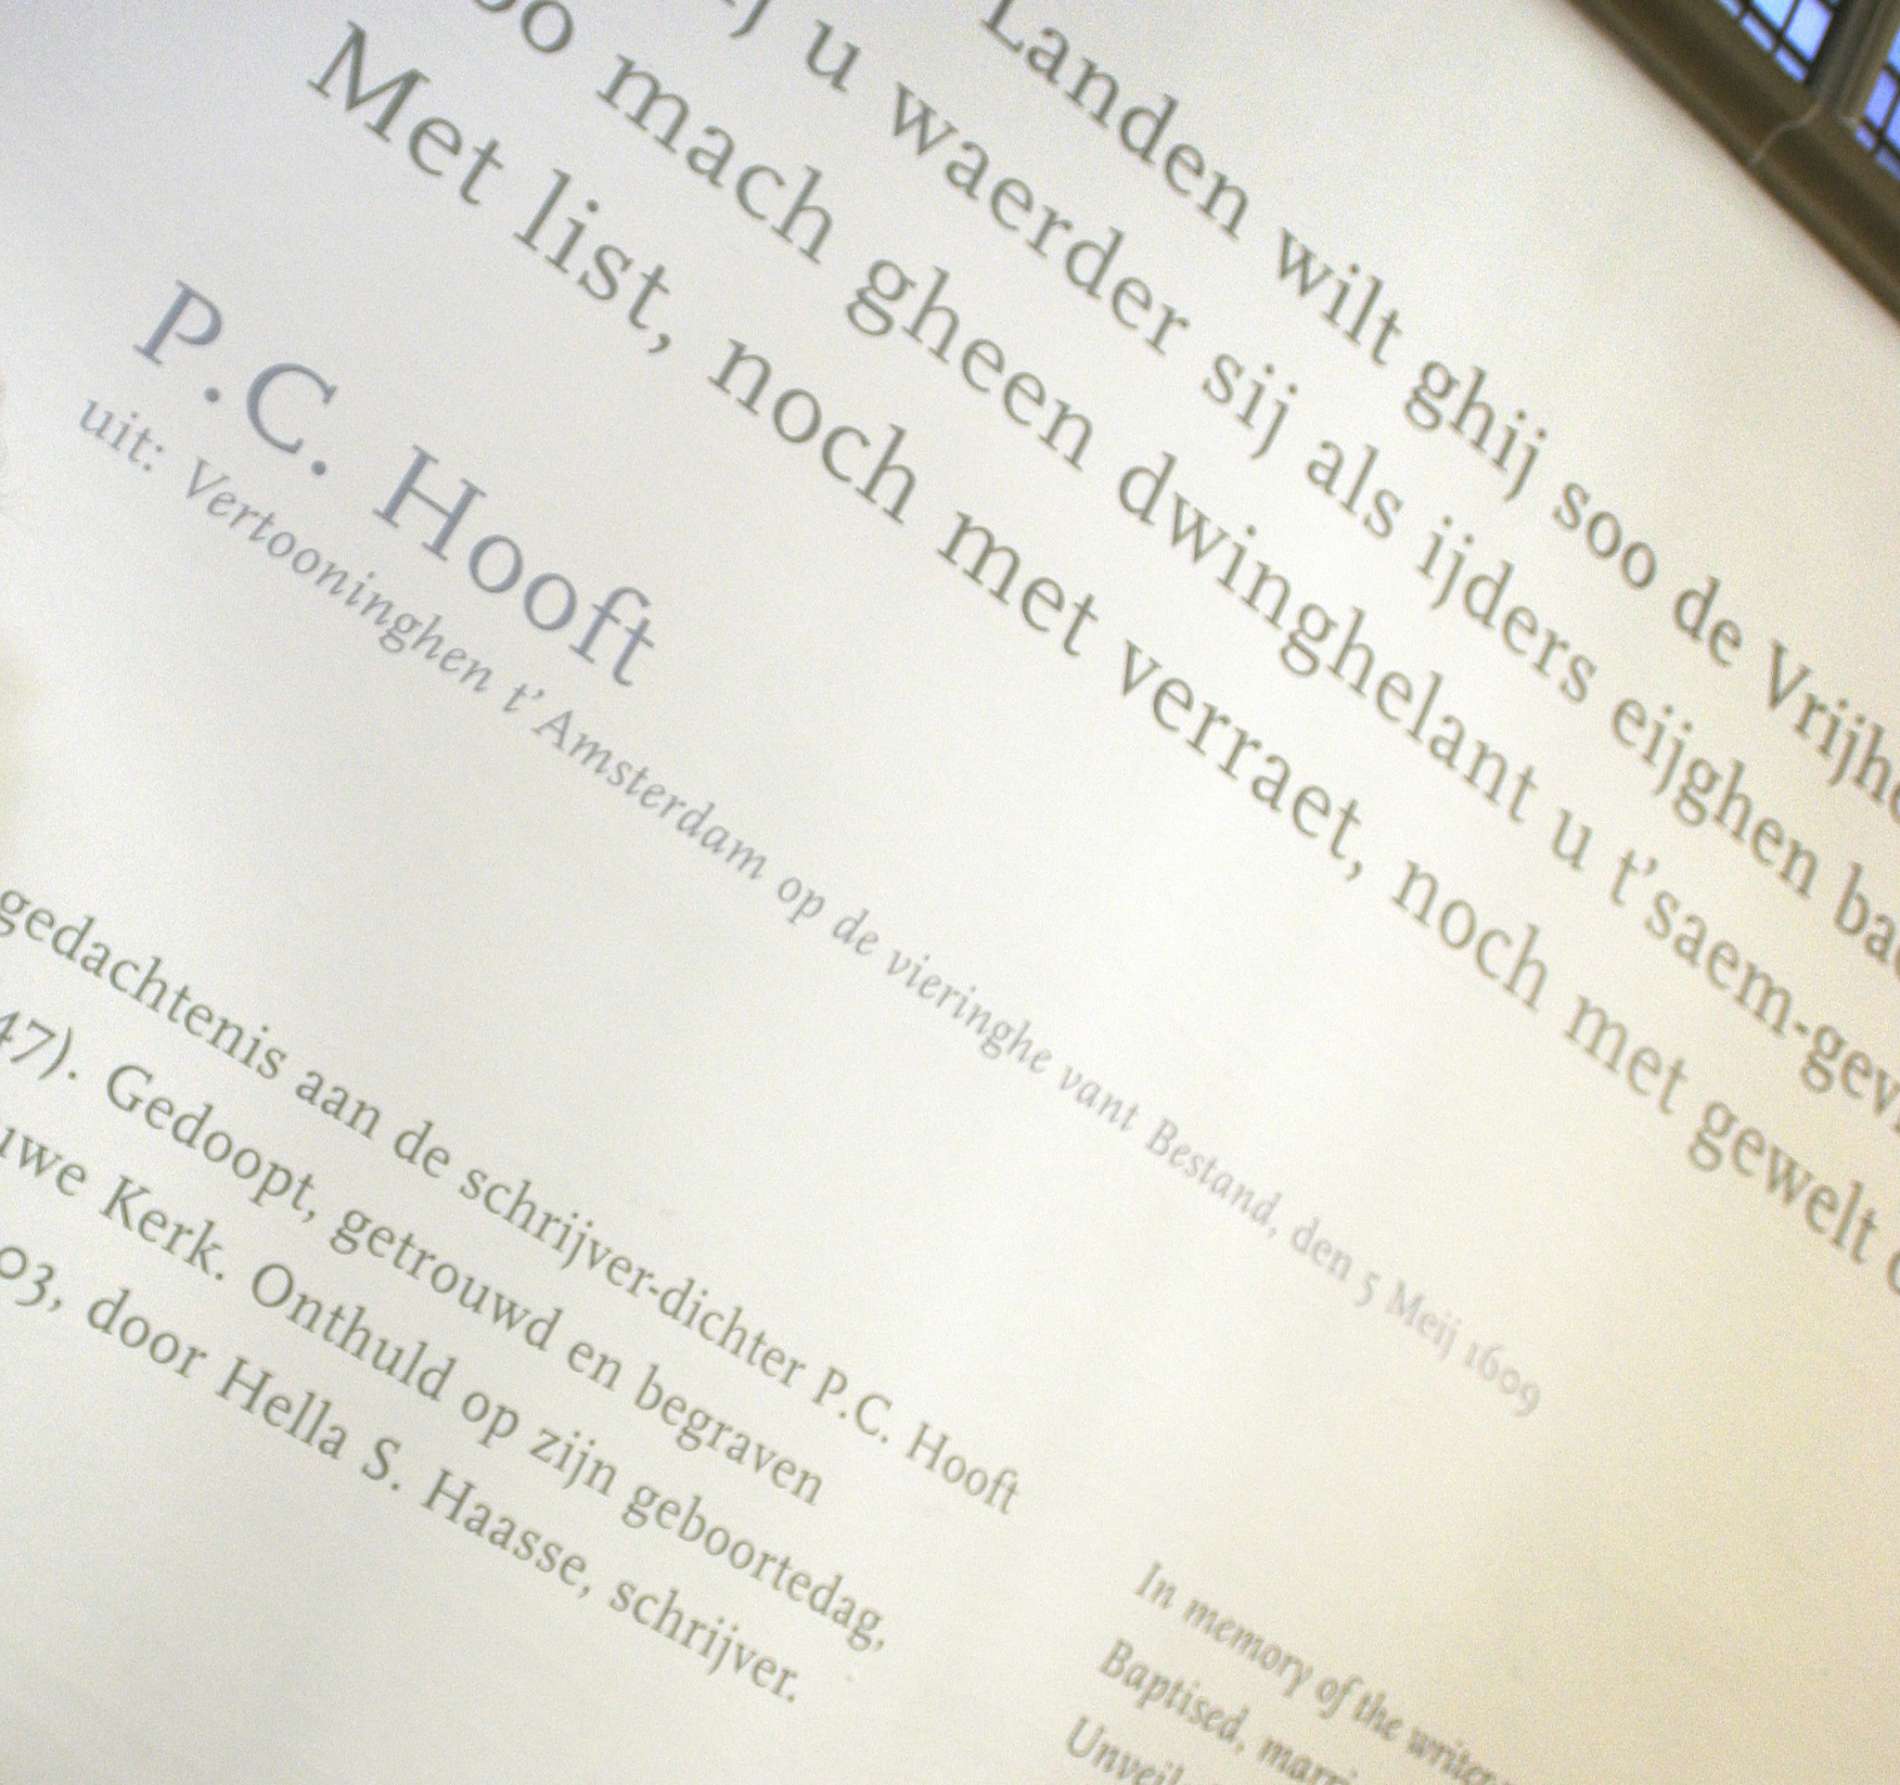 Landen wilt ghij soo de Vrijhe
u waerder sij als ijders eijghen ba
mach gheen dwinghelant u t'saem-gev
Met list, noch met verraet, noch met gewelt
P.C. Hooft
uit: Vertooninghen t' Amsterdam op de vieringhe vant Bestand, den 5 Meij 1609
gedachtenis aan de schrijver-dichter P.C. Hooft
47). Gedoopt, getrouwd en begraven
uwe Kerk. Onthuld op zijn geboortedag,
03, door Hella S. Haasse, schrijver.
In memory of the writer
Baptised, marri
Unveil